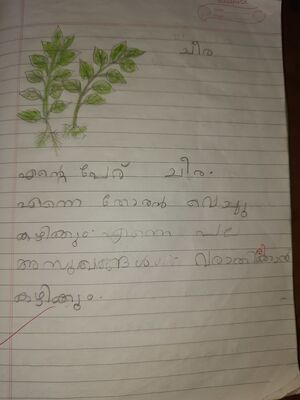 ചീര
എന്റെ പേര് ചീര.
എന്നെ തോരൻ വെച്ചു
കഴിക്കും. എന്നെ പല
അസുഖങ്ങൾ വരാതിരിക്കാൻ
കഴിക്കും.